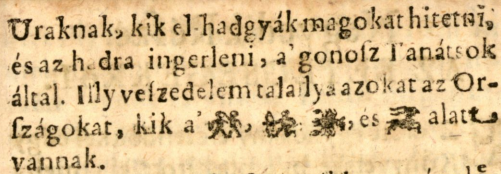 Uraknak, kik el hadgyák magokat hitetni,
és az hadra ingerleni, a' gonoſz Tanátsok
által. Illy veſzedelem talalya azokat az Or-
ſzágokat, kik a' ♊, , , és alatt
vannak.